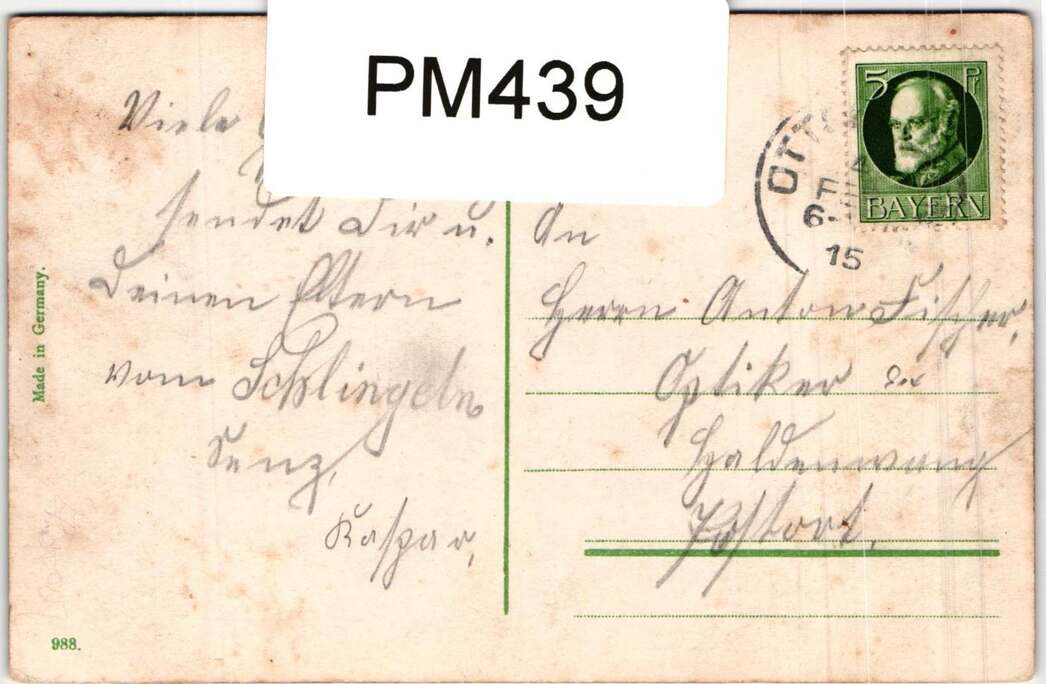 PM439
Viele
sendet Dir u.
Deinen Eltern
vom Schlingeln
Senz,
Kaspar,
Made in Germany.
988.
5 Pf
BAYERN
OTTO
6-
15
An
Herrn Anton Fischer,
Optiker
Haldenwang
Postort.